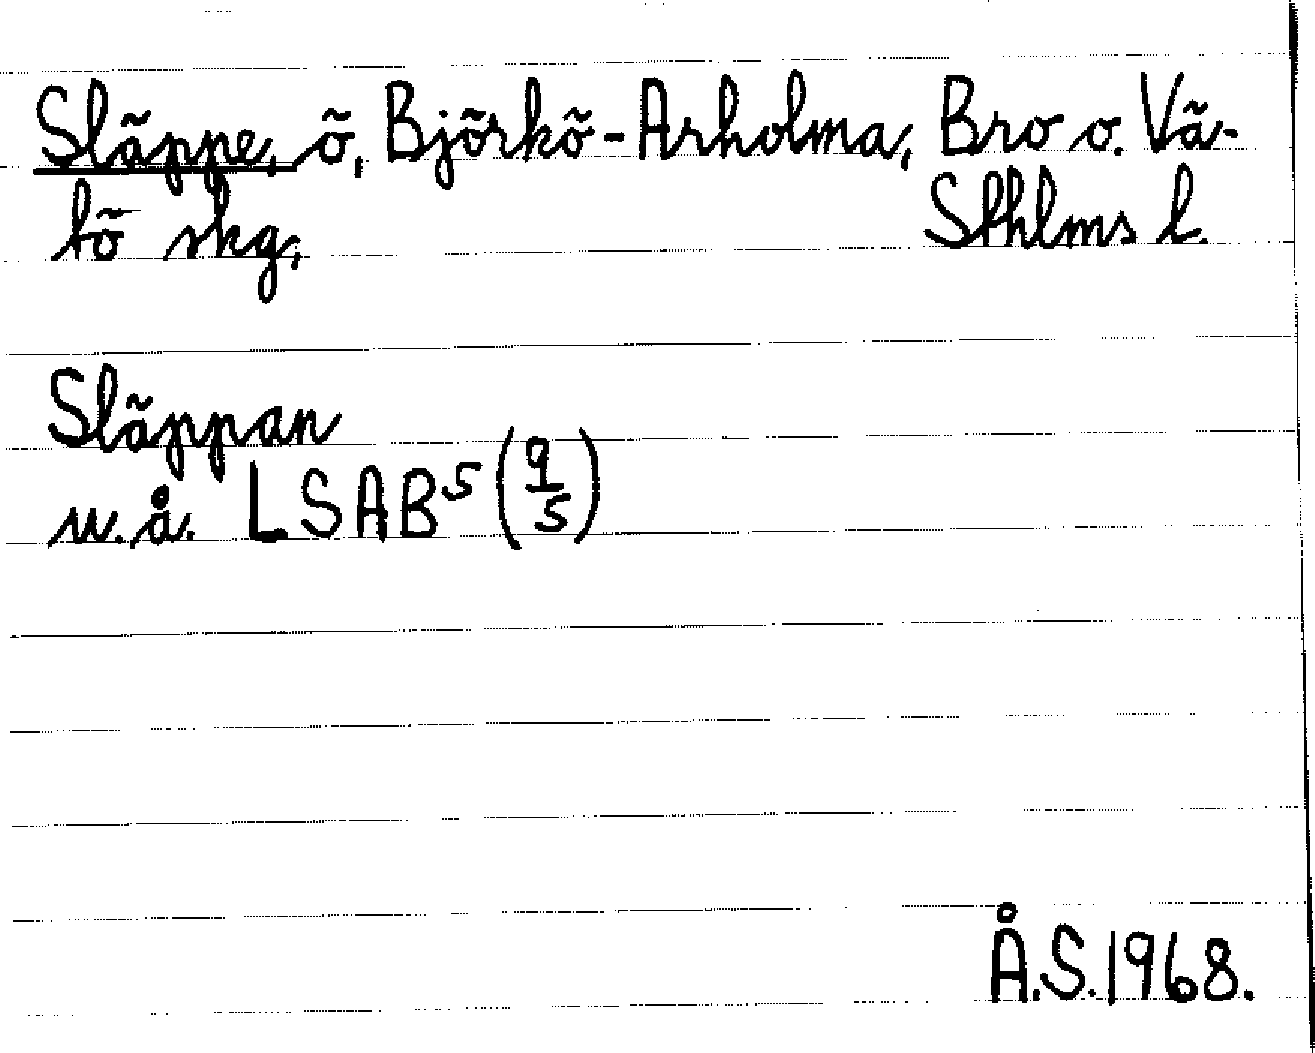 Släppe, ö, Björkö-Arholma, Bro o. Vä-
tö skg, Sthlms l.
Släppan
u.å. LSAB⁵ (9/5)
Å.S.1968.